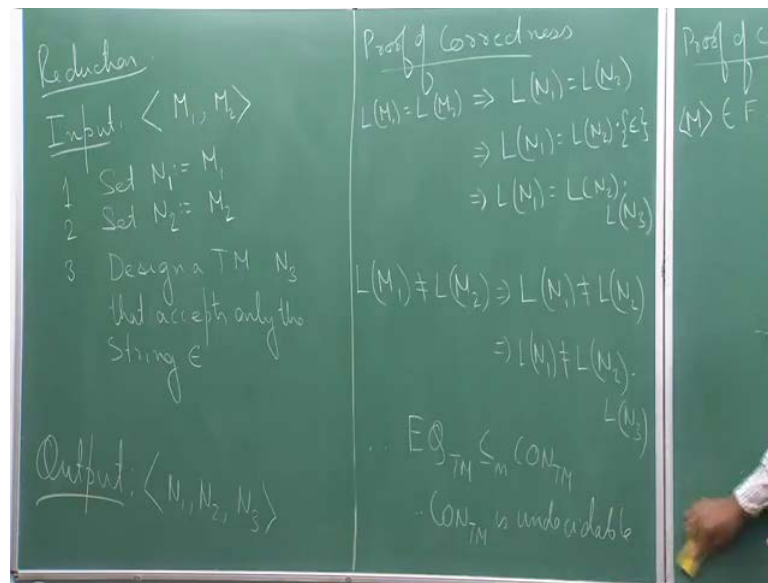 Reduction.
Input: ⟨M₁, M₂⟩
1 Set N₁ := M₁
2 Set N₂ := M₂
3 Design a TM N₃
that accepts only the
String ϵ
Output: ⟨N₁, N₂, N₃⟩
Proof of Correctness
L(M₁) = L(M₂) ⇒ L(N₁) = L(N₂)
⇒ L(N₁) = L(N₂)·{ϵ}
⇒ L(N₁) = L(N₂)·
L(N₃)
L(M₁) ≠ L(M₂) ⇒ L(N₁) ≠ L(N₂)
⇒ L(N₁) ≠ L(N₂)·
L(N₃)
∴ EQ_TM ≤_m CON_TM
∴ CON_TM is undecidable
Proof of C
⟨M⟩ ∈ F